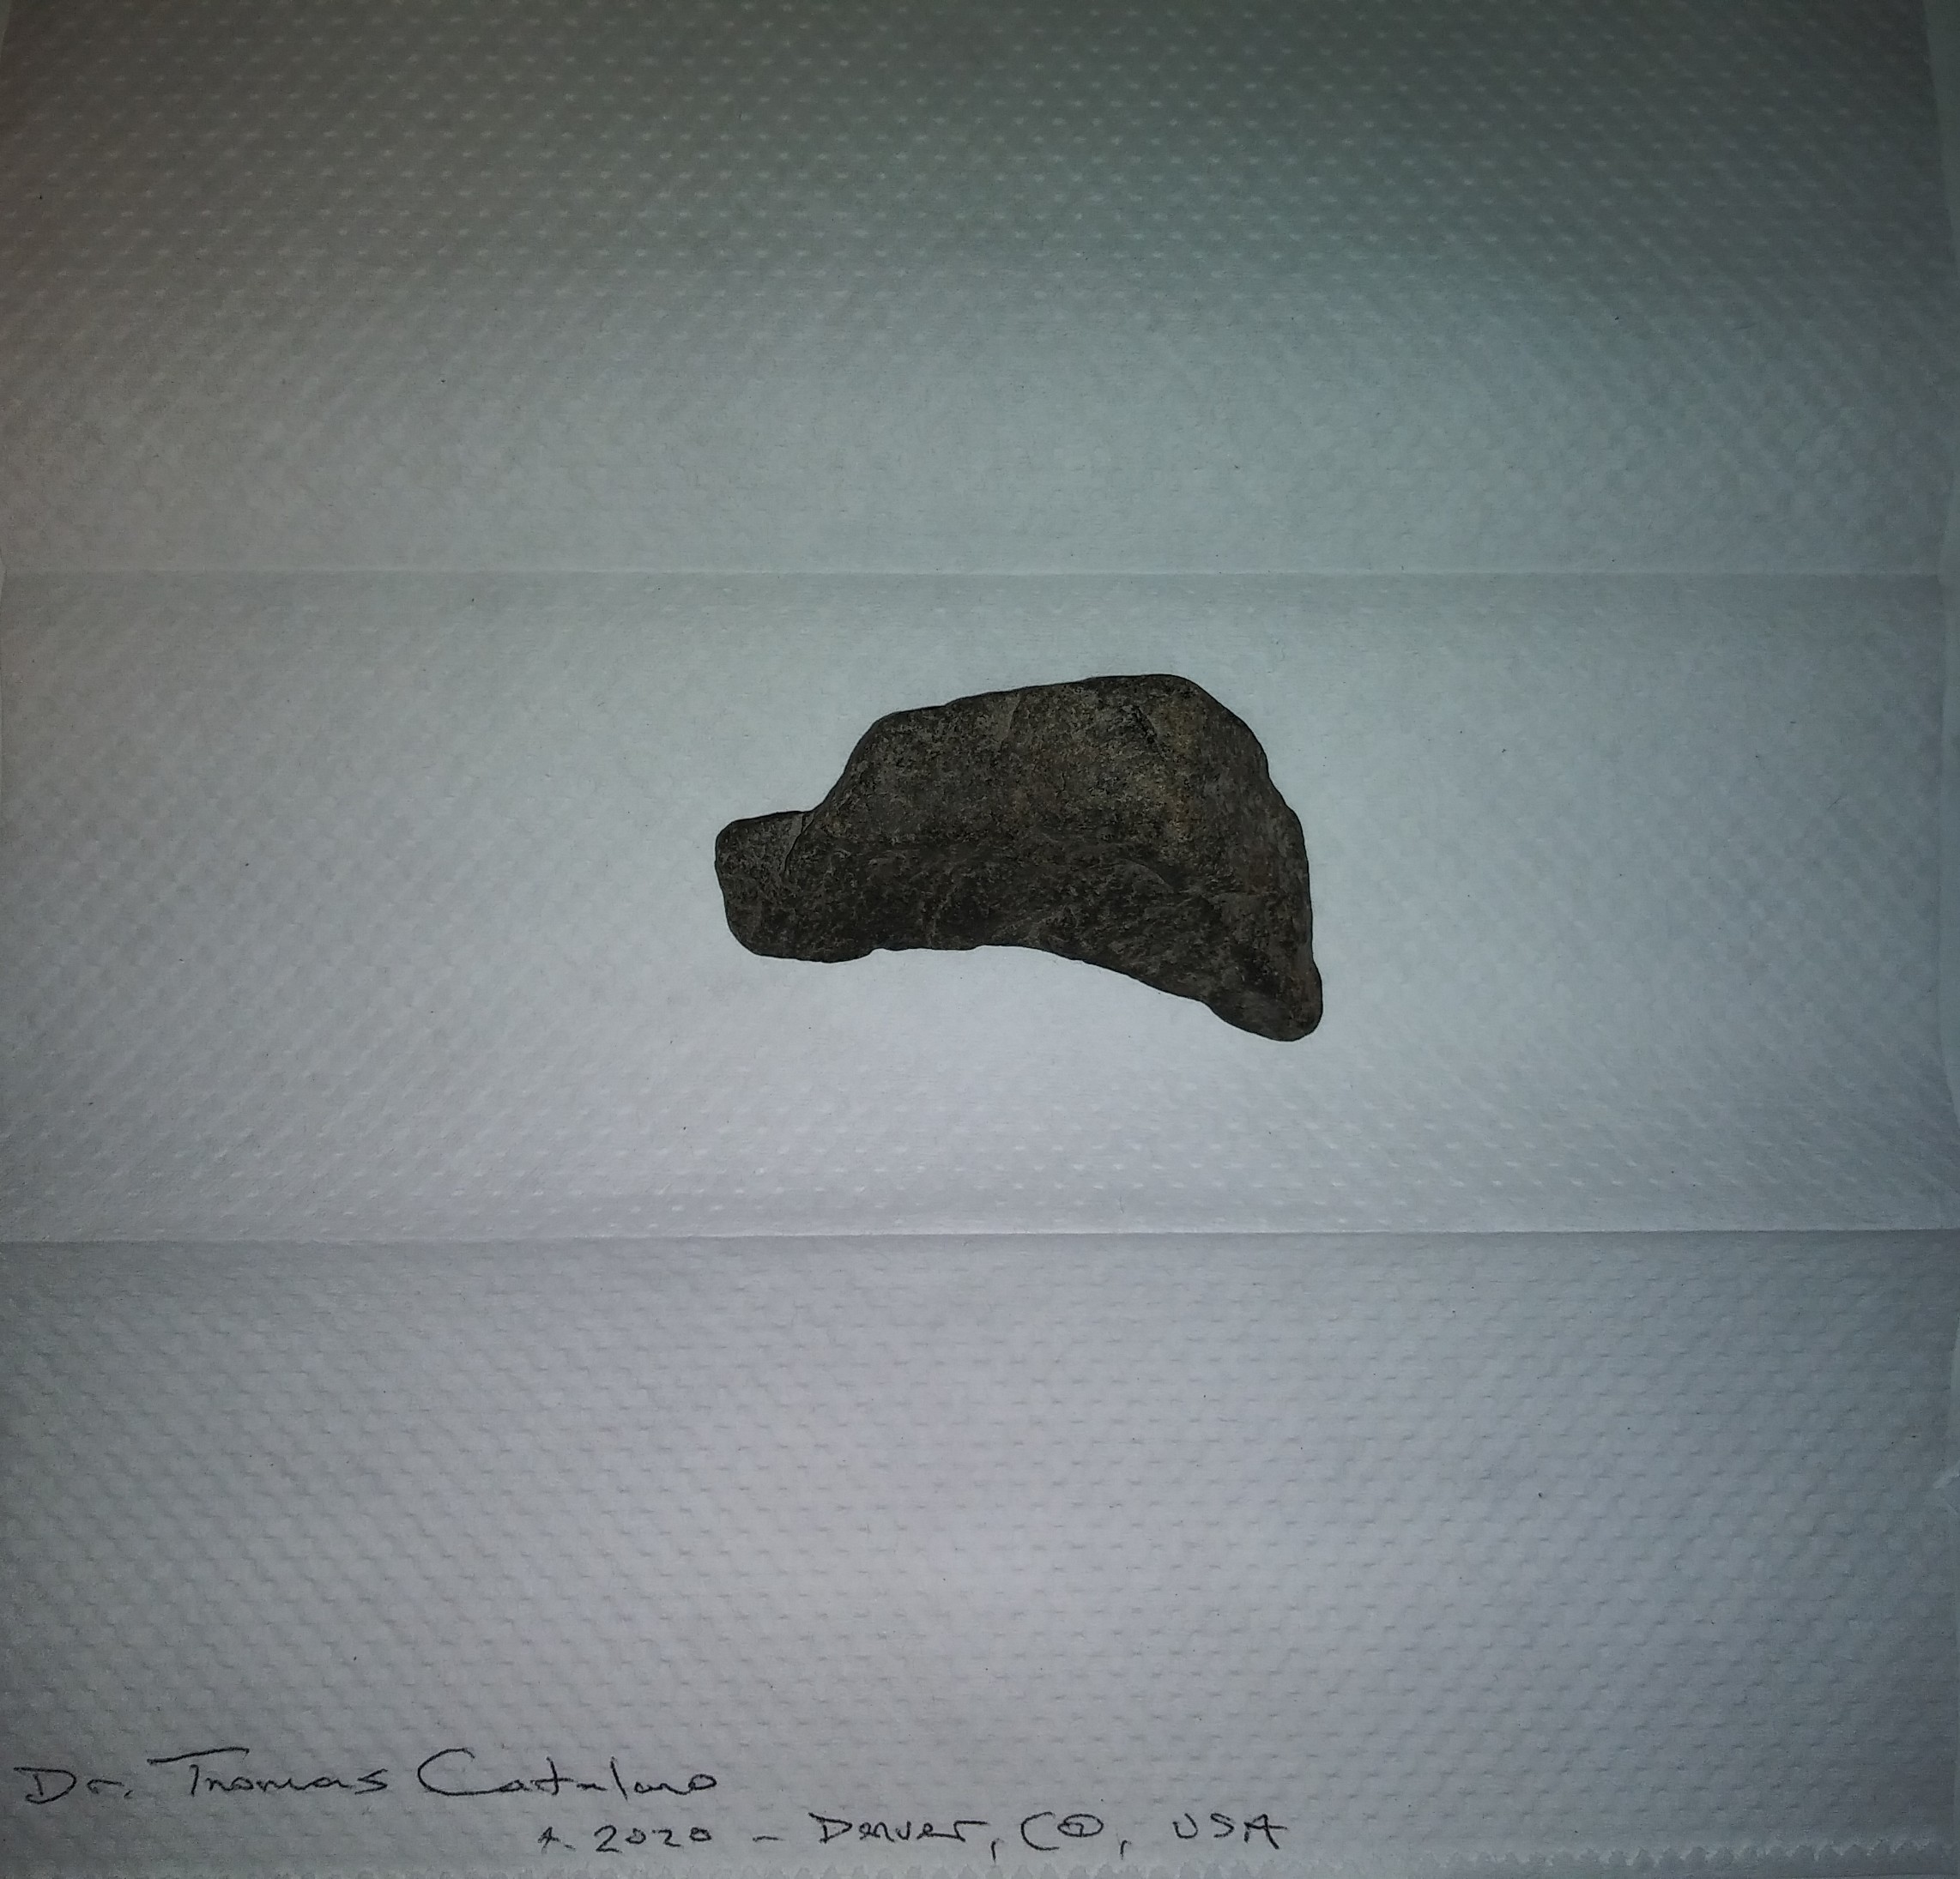 Dr. Thomas Catalano
2020 - Denver, CO, USA